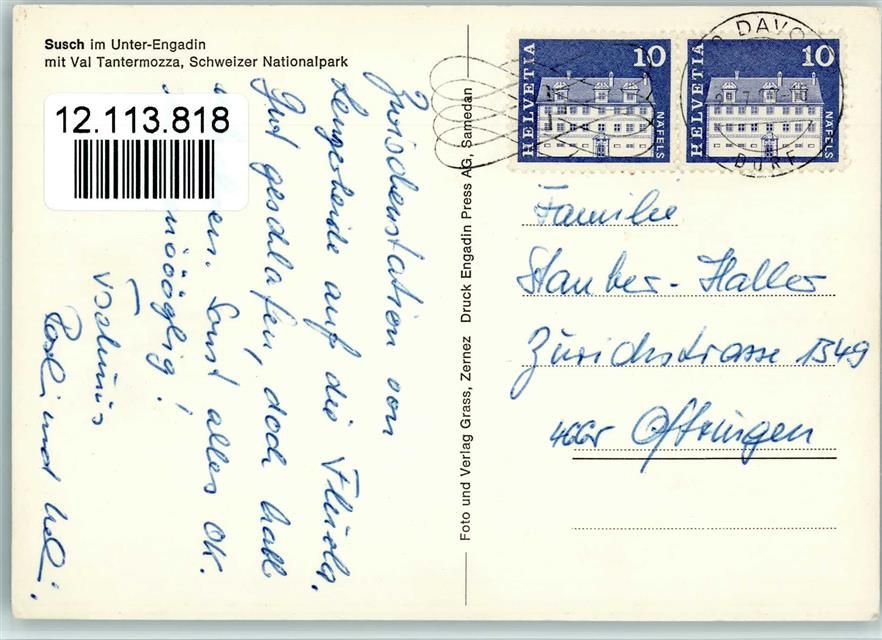 Susch im Unter-Engadin
mit Val Tantermozza, Schweizer Nationalpark
12.113.818
Zwischenstation von
Lenzerheide auf die Flüela.
Gut geschlafen, doch halb
Sonst alles OK.
möööglig!
und
Foto und Verlag Grass, Zernez Druck Engadin Press AG, Samedan
HELVETIA 10 NÄFELS
HELVETIA 10 NÄFELS
DAVO
DORF
Familie
Stauber-Haller
Zürichstrasse 1349
4665 Oftringen